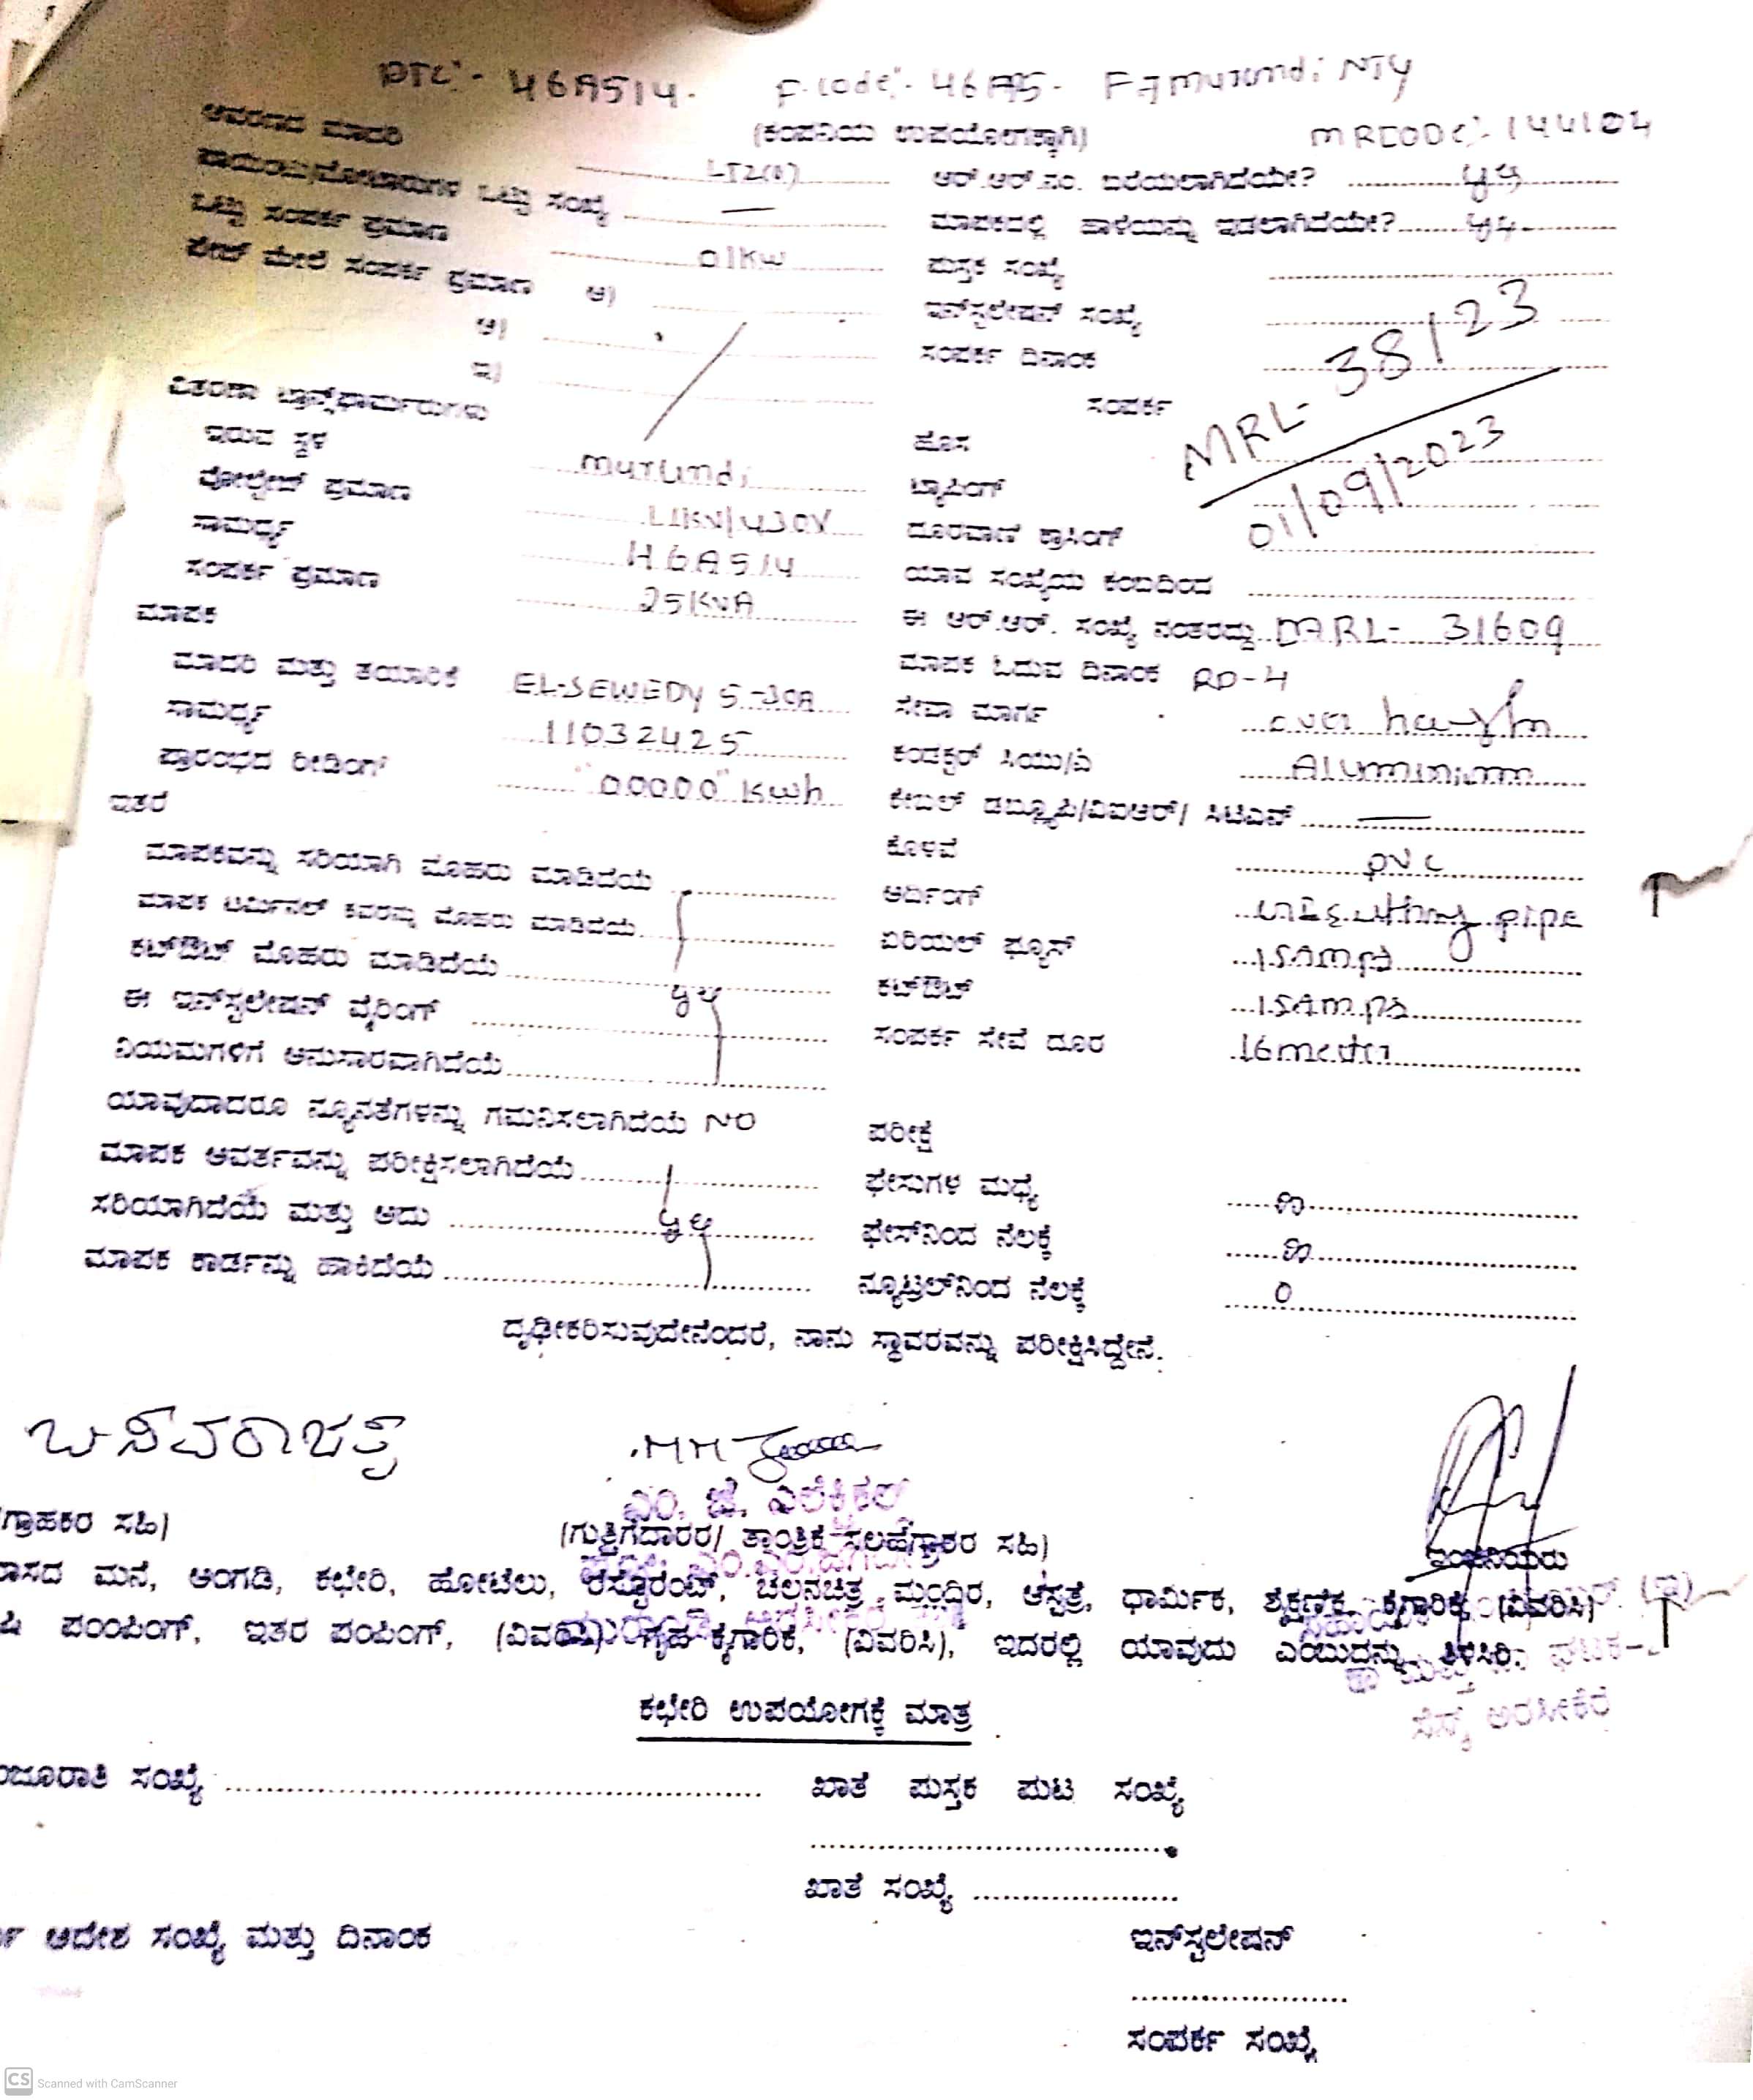 DTC:- 46A514. F.code:- 46A5- F7 murundi NJY
(ಕಂಪನಿಯ ಉಪಯೋಗಕ್ಕಾಗಿ) MRCODE:- 144104
ಆವರಣದ ಮಾದರಿ LT2(a) ಆರ್.ಆರ್.ನಂ. ಬರೆಯಲಾಗಿದೆಯೇ?
ಒಟ್ಟು ಸಂಖ್ಯೆ — ಮಾಪಕದಲ್ಲಿ ಹಾಳೆಯನ್ನು ಇಡಲಾಗಿದೆಯೇ?
ಒಟ್ಟು ಸಂಪರ್ಕ ಪ್ರಮಾಣ 01KW ಪುಸ್ತಕ ಸಂಖ್ಯೆ
ಮೇಲೆ ಸಂಪರ್ಕ ಪ್ರಮಾಣ ಅ) ಇನ್‌ಸ್ಟಲೇಷನ್ ಸಂಖ್ಯೆ
ಆ) ಸಂಪರ್ಕ ದಿನಾಂಕ
ಇ) ಸಂಪರ್ಕ
MRL- 38/23
01/09/2023
ವಿತರಣಾ ಟ್ರಾನ್ಸ್‌ಫಾರ್ಮರುಗಳು
ಇರುವ ಸ್ಥಳ murundi ಹೊಸ
ವೋಲ್ಟೇಜ್ ಪ್ರಮಾಣ 11KV/430V ಟ್ಯಾಪಿಂಗ್
ಸಾಮರ್ಥ್ಯ 46A514 ದೂರವಾಣಿ ಕ್ರಾಸಿಂಗ್
ಸಂಪರ್ಕ ಪ್ರಮಾಣ 25KVA ಯಾವ ಸಂಖ್ಯೆಯ ಕಂಬದಿಂದ
ಮಾಪಕ ಈ ಆರ್.ಆರ್. ಸಂಖ್ಯೆ ನಂತರದ್ದು MRL- 31609
ಮಾದರಿ ಮತ್ತು ತಯಾರಿಕೆ EL-SEWEDY 5-30A ಮಾಪಕ ಓದುವ ದಿನಾಂಕ RD-4
ಸಾಮರ್ಥ್ಯ 11032425 ಸೇವಾ ಮಾರ್ಗ over
ಪ್ರಾರಂಭದ ರೀಡಿಂಗ್ "00000" Kwh ಕಂಡಕ್ಟರ್ ಸಿಯು/ಎ Aluminium
ಇತರೆ ಕೇಬಲ್ ಡಬ್ಲ್ಯೂಪಿ/ವಿಐಆರ್/ ಸಿಟಿಎಸ್ —
ಮಾಪಕವನ್ನು ಸರಿಯಾಗಿ ಮೊಹರು ಮಾಡಿದೆಯೆ ಕೊಳವೆ PVC
ಮಾಪಕ ಟರ್ಮಿನಲ್ ಕವರನ್ನು ಮೊಹರು ಮಾಡಿದೆಯೆ ಅರ್ದಿಂಗ್ pipe
ಕಟ್‌ಔಟ್ ಮೊಹರು ಮಾಡಿದೆಯೆ ಏರಿಯಲ್ ಫ್ಯೂಸ್ 15Amps
ಈ ಇನ್‌ಸ್ಟಲೇಷನ್ ವೈರಿಂಗ್ ಕಟ್‌ಔಟ್ 15Amps
ನಿಯಮಗಳಿಗೆ ಅನುಸಾರವಾಗಿದೆಯೆ ಸಂಪರ್ಕ ಸೇವೆ ದೂರ 16meter
ಯಾವುದಾದರೂ ನ್ಯೂನತೆಗಳನ್ನು ಗಮನಿಸಲಾಗಿದೆಯೆ NO ಪರೀಕ್ಷೆ
ಮಾಪಕ ಆವರ್ತವನ್ನು ಪರೀಕ್ಷಿಸಲಾಗಿದೆಯೆ ಫೇಸುಗಳ ಮಧ್ಯೆ
ಸರಿಯಾಗಿದೆಯೆ ಮತ್ತು ಅದು ಫೇಸ್‌ನಿಂದ ನೆಲಕ್ಕೆ
ಮಾಪಕ ಕಾರ್ಡನ್ನು ಹಾಕಿದೆಯೆ ನ್ಯೂಟ್ರಲ್‌ನಿಂದ ನೆಲಕ್ಕೆ 0
ದೃಢೀಕರಿಸುವುದೇನೆಂದರೆ, ನಾನು ಸ್ಥಾವರವನ್ನು ಪರೀಕ್ಷಿಸಿದ್ದೇನೆ.
ಎಂ. ಜೆ. ಎಲೆಕ್ಟ್ರಿಕಲ್
ಗ್ರಾಹಕರ ಸಹಿ) (ಗುತ್ತಿಗೆದಾರರ/ ತಾಂತ್ರಿಕ ಸಲಹೆಗಾರರ ಸಹಿ) ಇಂಜಿನಿಯರು
ಾಸದ ಮನೆ, ಅಂಗಡಿ, ಕಛೇರಿ, ಹೋಟೆಲು, ರೆಸ್ಟೊರೆಂಟ್, ಚಲನಚಿತ್ರ ಮಂದಿರ, ಆಸ್ಪತ್ರೆ, ಧಾರ್ಮಿಕ, ಶೈಕ್ಷಣಿಕ, ಕೈಗಾರಿಕೆ, (ವಿವರಿಸಿ)
ಷಿ ಪಂಂಪಿಂಗ್, ಇತರ ಪಂಪಿಂಗ್, (ವಿವರಿಸಿ) ಗೃಹ ಕೈಗಾರಿಕೆ, (ವಿವರಿಸಿ), ಇದರಲ್ಲಿ ಯಾವುದು ಎಂಬುದನ್ನು ತಿಳಿಸಿರಿ.
ಘಟಕ-
ಸೆಸ್ಕ್ ಅರಸೀಕೆರೆ
ಕಛೇರಿ ಉಪಯೋಗಕ್ಕೆ ಮಾತ್ರ
ಂಜೂರಾತಿ ಸಂಖ್ಯೆ ಖಾತೆ ಪುಸ್ತಕ ಪುಟ ಸಂಖ್ಯೆ
ಖಾತೆ ಸಂಖ್ಯೆ
ಆದೇಶ ಸಂಖ್ಯೆ ಮತ್ತು ದಿನಾಂಕ ಇನ್‌ಸ್ಟಲೇಷನ್
ಸಂಪರ್ಕ ಸಂಖ್ಯೆ
CS Scanned with CamScanner